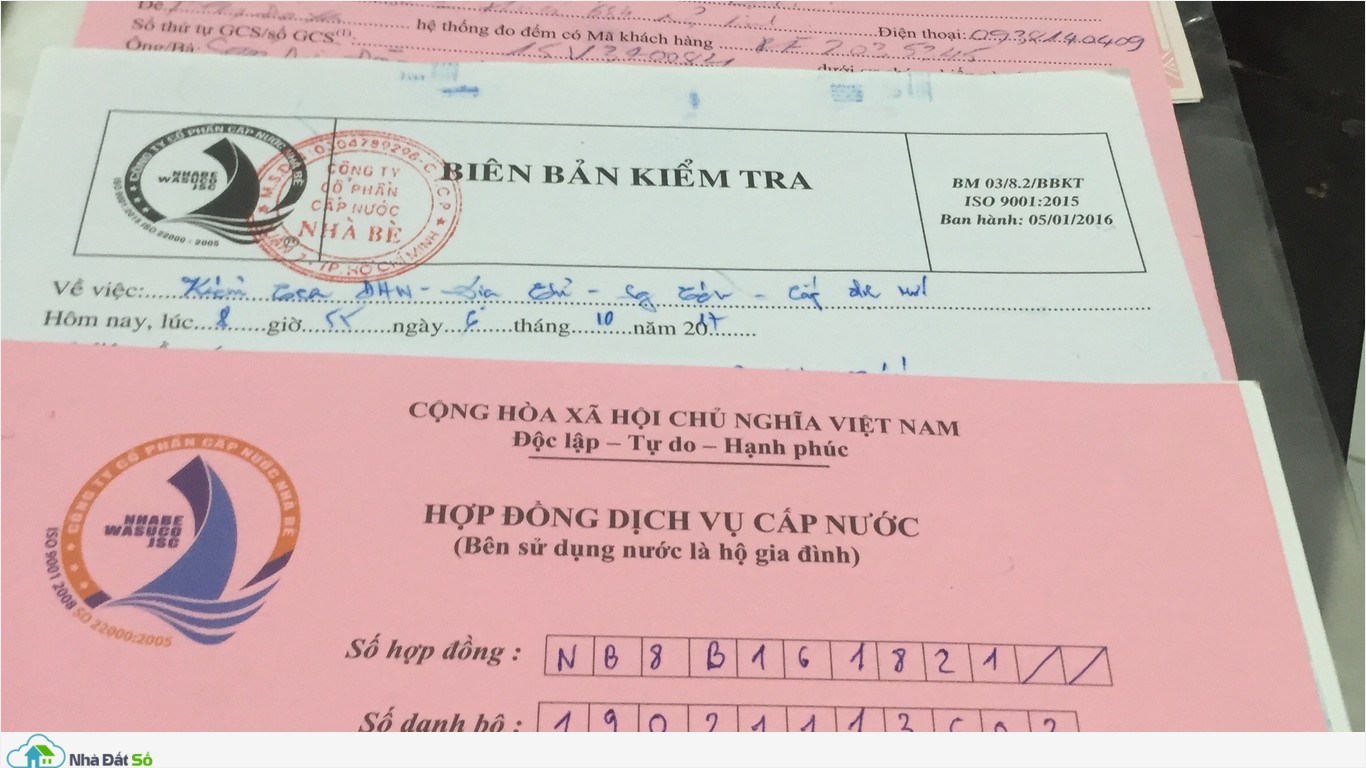 Số thứ tự GCS/số GCS(1). hệ thống đo đếm có Mã khách hàng Điện thoại: 0938140409
Ông/Bà:
CÔNG TY CỔ PHẦN CẤP NƯỚC NHÀ BÈ
NHABE
WASUCO
JSC
ISO 9001:2015 ISO 22000:2005
M.S.D 0304789298-C CP
CÔNG TY
CỔ PHẦN
CẤP NƯỚC
NHÀ BÈ
TP. HỒ CHÍ MINH
BIÊN BẢN KIỂM TRA
BM 03/8.2/BBKT
ISO 9001:2015
Ban hành: 05/01/2016
Về việc: Kiểm tra ĐHN - Địa chỉ -
Hôm nay, lúc 8 giờ 55 ngày 6 tháng 10 năm 2017
CỘNG HÒA XÃ HỘI CHỦ NGHĨA VIỆT NAM
Độc lập – Tự do – Hạnh phúc
CÔNG TY CỔ PHẦN CẤP NƯỚC NHÀ BÈ
NHABE
WASUCO
JSC
ISO 9001 2008 ISO 22000:2005
HỢP ĐỒNG DỊCH VỤ CẤP NƯỚC
(Bên sử dụng nước là hộ gia đình)
Số hợp đồng : NB8B161821//
Số danh bộ :
Nhà Đất Số